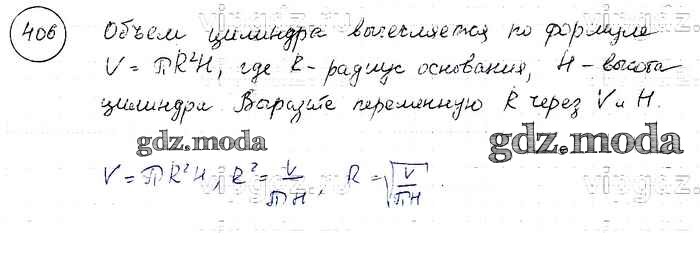 406
Объем цилиндра вычесляется по формуле
V = πR²H, где R - радиус основания, H - высота
цилиндра Выразите переменную R через V и H.
gdz.moda
gdz.moda
V = πR²H, R² = V/πH, R = √V/πH